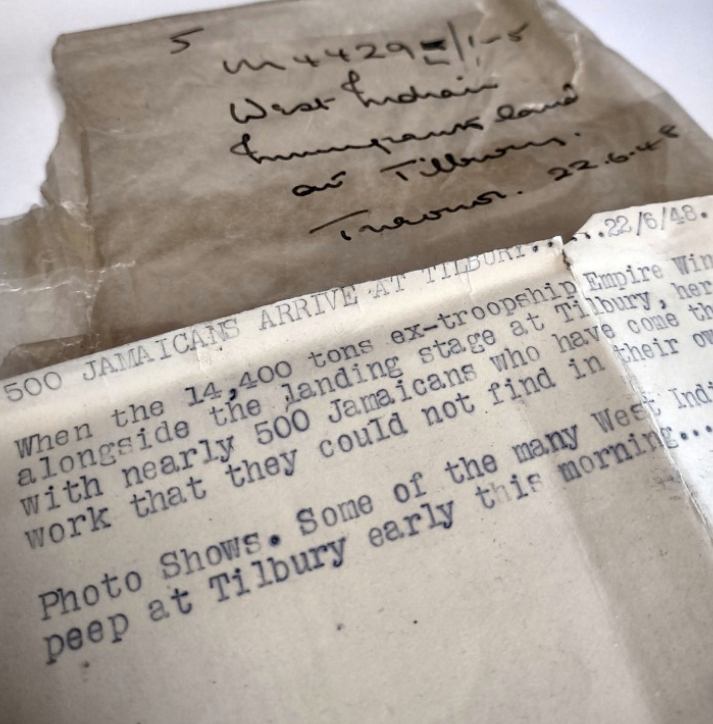 5
M4429E/1-5
West Indian
Immigrants land
at Tilbury.
Trevor. 22.6.48
500 JAMAICANS ARRIVE AT TILBURY.....22/6/48.
When the 14,400 tons ex-troopship Empire Win
alongside the landing stage at Tilbury, her
with nearly 500 Jamaicans who have come th
work that they could not find in their ow
Photo Shows. Some of the many West Indi
peep at Tilbury early this morning...